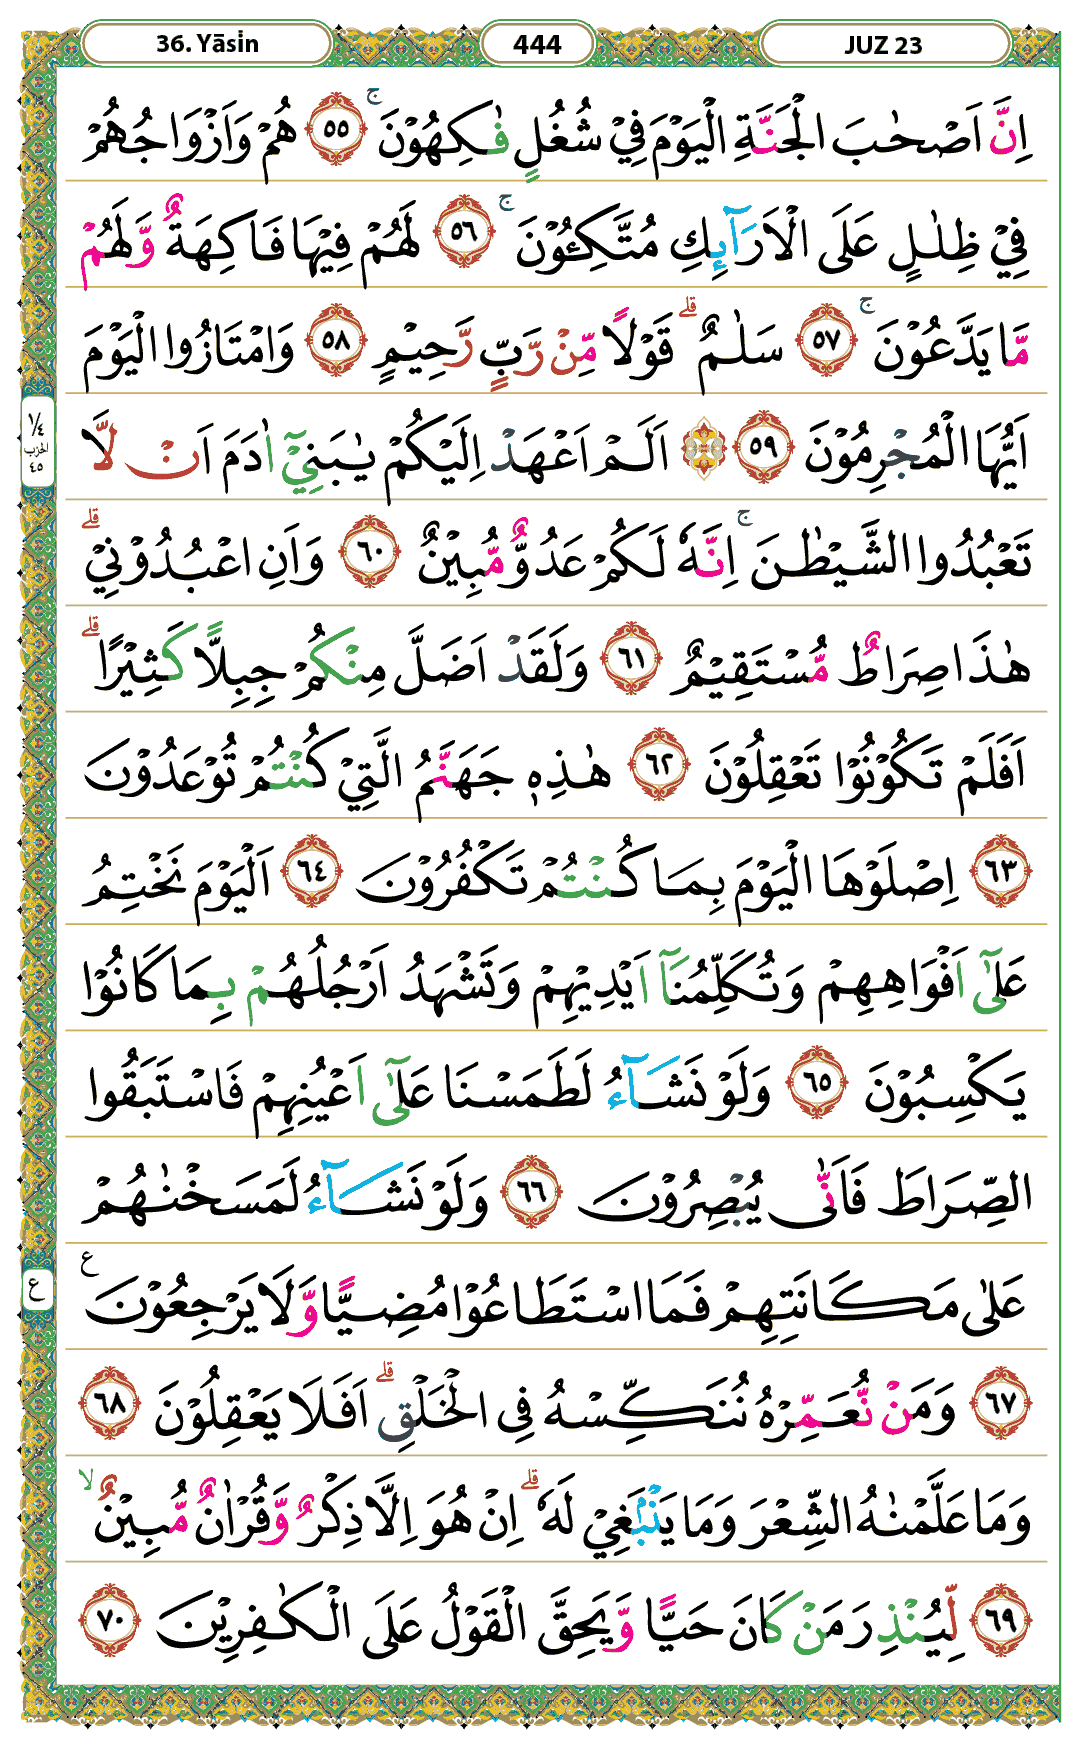 36. Yāsin
444
JUZ 23
اِنَّ اَصْحٰبَ الْجَنَّةِ الْيَوْمَ فِيْ شُغُلٍ فٰكِهُوْنَ ۚ ٥٥ هُمْ وَاَزْوَاجُهُمْ
فِيْ ظِلٰلٍ عَلَى الْاَرَآئِكِ مُتَّكِـُٔوْنَ ۚ ٥٦ لَهُمْ فِيْهَا فَاكِهَةٌ وَّلَهُمْ
مَّا يَدَّعُوْنَ ۚ ٥٧ سَلٰمٌ ۗ قَوْلًا مِّنْ رَّبٍّ رَّحِيْمٍ ٥٨ وَامْتَازُوا الْيَوْمَ
اَيُّهَا الْمُجْرِمُوْنَ ٥٩ ۞ اَلَمْ اَعْهَدْ اِلَيْكُمْ يٰبَنِيْٓ اٰدَمَ اَنْ لَّا
١/٤
الحزب
٤٥
تَعْبُدُوا الشَّيْطٰنَ ۚ اِنَّهٗ لَكُمْ عَدُوٌّ مُّبِيْنٌ ٦٠ وَاَنِ اعْبُدُوْنِيْ ۗ
هٰذَا صِرَاطٌ مُّسْتَقِيْمٌ ٦١ وَلَقَدْ اَضَلَّ مِنْكُمْ جِبِلًّا كَثِيْرًا ۗ
اَفَلَمْ تَكُوْنُوْا تَعْقِلُوْنَ ٦٢ هٰذِهٖ جَهَنَّمُ الَّتِيْ كُنْتُمْ تُوْعَدُوْنَ
٦٣ اِصْلَوْهَا الْيَوْمَ بِمَا كُنْتُمْ تَكْفُرُوْنَ ٦٤ اَلْيَوْمَ نَخْتِمُ
عَلٰٓى اَفْوَاهِهِمْ وَتُكَلِّمُنَآ اَيْدِيْهِمْ وَتَشْهَدُ اَرْجُلُهُمْ بِمَا كَانُوْا
يَكْسِبُوْنَ ٦٥ وَلَوْ نَشَآءُ لَطَمَسْنَا عَلٰٓى اَعْيُنِهِمْ فَاسْتَبَقُوا
الصِّرَاطَ فَاَنّٰى يُبْصِرُوْنَ ٦٦ وَلَوْ نَشَآءُ لَمَسَخْنٰهُمْ
عَلٰى مَكَانَتِهِمْ فَمَا اسْتَطَاعُوْا مُضِيًّا وَّلَا يَرْجِعُوْنَ ع
ع
٦٧ وَمَنْ نُّعَمِّرْهُ نُنَكِّسْهُ فِى الْخَلْقِ ۗ اَفَلَا يَعْقِلُوْنَ ٦٨
وَمَا عَلَّمْنٰهُ الشِّعْرَ وَمَا يَنْۢبَغِيْ لَهٗ ۗ اِنْ هُوَ اِلَّا ذِكْرٌ وَّقُرْاٰنٌ مُّبِيْنٌ ۙ
٦٩ لِّيُنْذِرَ مَنْ كَانَ حَيًّا وَّيَحِقَّ الْقَوْلُ عَلَى الْكٰفِرِيْنَ ٧٠